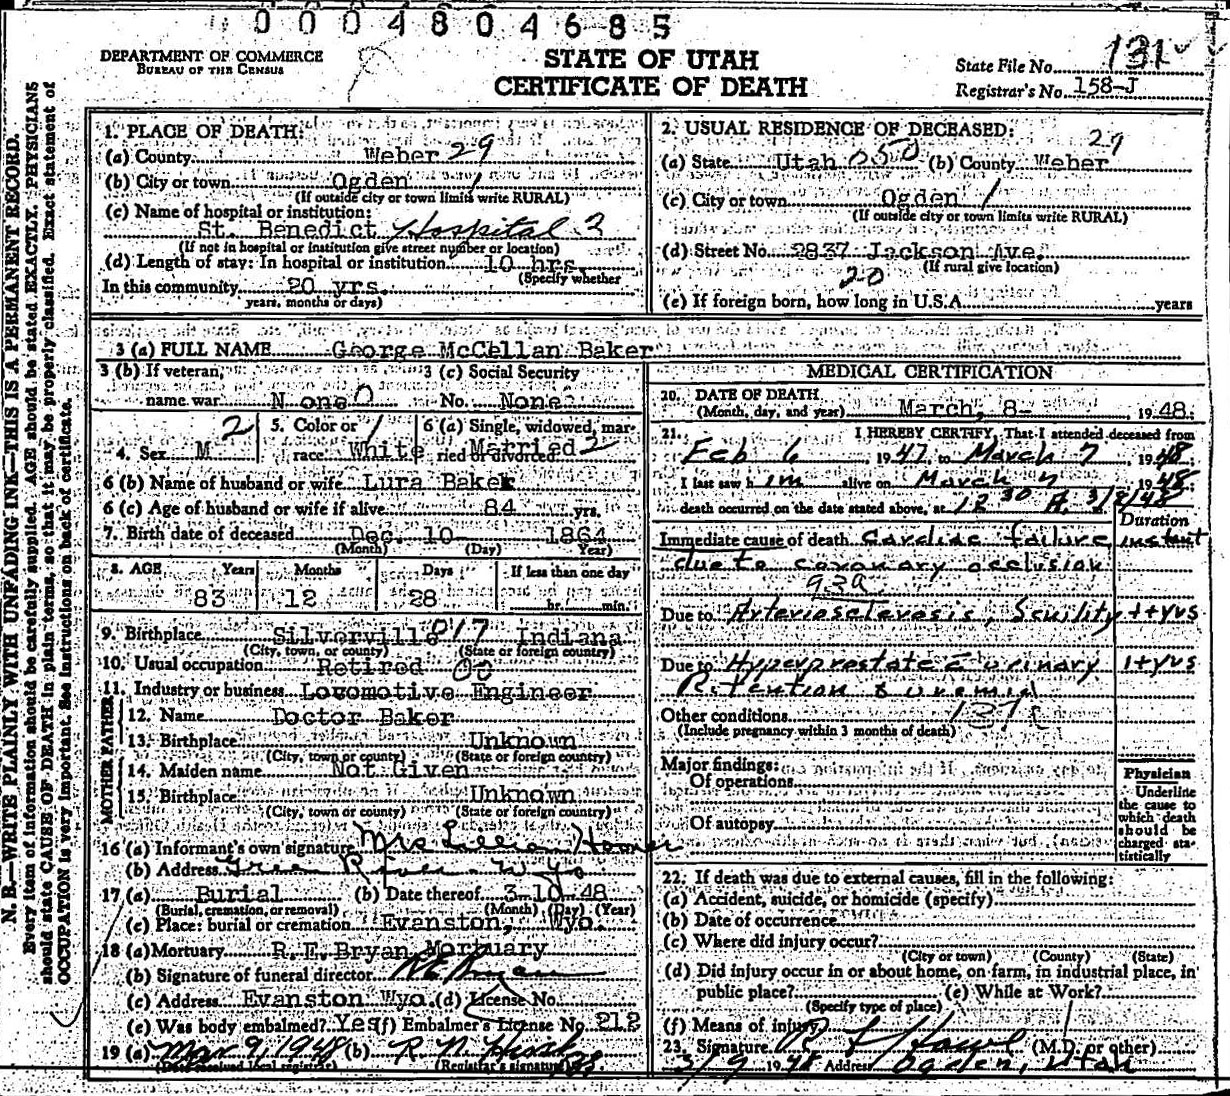 0 0 0 4 8 0 4 6 8 5
DEPARTMENT OF COMMERCE
BUREAU OF THE CENSUS
STATE OF UTAH
CERTIFICATE OF DEATH
State File No. 131
Registrar's No. 158-J
N. B.—WRITE PLAINLY WITH UNFADING INK—THIS IS A PERMANENT RECORD.
Every item of information should be carefully supplied. AGE should be stated EXACTLY. PHYSICIANS
should state CAUSE OF DEATH in plain terms, so that it may be properly classified. Exact statement of
OCCUPATION is very important. See instructions on back of certificate.
1. PLACE OF DEATH:
(a) County Weber 29
(b) City or town Ogden 1
(If outside city or town limits write RURAL)
(c) Name of hospital or institution:
St. Benedict Hospital 2
(If not in hospital or institution give street number or location)
(d) Length of stay: In hospital or institution 10 hrs.
(Specify whether
In this community 20 yrs.
years, months or days)
2. USUAL RESIDENCE OF DECEASED:
29
(a) State Utah 050 (b) County Weber
(c) City or town Ogden 1
(If outside city or town limits write RURAL)
(d) Street No. 2837 Jackson Ave.
20 (If rural give location)
(e) If foreign born, how long in U.S.A. years
3 (a) FULL NAME George McCellan Baker
3 (b) If veteran, 3 (c) Social Security
name war None 0 No. None
4. Sex M 2 5. Color or race White 1 6 (a) Single, widowed, married or divorced Married 2
6 (b) Name of husband or wife Lura Baker
6 (c) Age of husband or wife if alive 84 yrs.
7. Birth date of deceased Dec. 10 1864
(Month) (Day) Year)
8. AGE Years Months Days If less than one day
83 12 28 hr. min.
9. Birthplace Silverville 017 Indiana
(City, town, or county) (State or foreign country)
10. Usual occupation Retired 00
11. Industry or business Locomotive Engineer
FATHER
12. Name Doctor Baker
13. Birthplace Unknown
(City, town or county) (State or foreign country)
MOTHER
14. Maiden name Not Given
15. Birthplace Unknown
(City, town or county) (State or foreign country)
16 (a) Informant's own signature Mrs Lillian Homer
(b) Address Green River Wyo
17 (a) Burial (b) Date thereof 3-10-48
(Burial, cremation, or removal) (Month) (Day) (Year)
(c) Place: burial or cremation Evanston, Wyo.
18 (a) Mortuary R.E.Bryan Mortuary
(b) Signature of funeral director RE Bryan
(c) Address Evanston Wyo. (d) License No.
(e) Was body embalmed? Yes (f) Embalmer's License No. 212
19 (a) Mar 9, 1948 (b) R. N.
(Date received local registrar) (Registrar's signature)
MEDICAL CERTIFICATION
20. DATE OF DEATH
(Month, day, and year) March, 8- 1948
21. I HEREBY CERTIFY, That I attended deceased from
Feb 6 1947, to March 7 1948
I last saw him alive on March 7 1948
death occurred on the date stated above, at 12 30 A. 3/8/48
Duration
Immediate cause of death Cardiac failure instant
due to coronary occlusion
93a
Due to Arteriosclerosis, Senility ++yrs
Due to Hyperprostate c̄ urinary 1+yrs
Retention & uremia
137
Other conditions
(Include pregnancy within 3 months of death)
Major findings:
Of operations
Of autopsy
Physician
Underline
the cause to
which death
should be
charged sta-
tistically
22. If death was due to external causes, fill in the following:
(a) Accident, suicide, or homicide (specify)
(b) Date of occurrence
(c) Where did injury occur?
(City or town) (County) (State)
(d) Did injury occur in or about home, on farm, in industrial place, in
public place? (e) While at Work?
(Specify type of place)
(f) Means of injury
23. Signature (M.D. or other)
3/9 1948 Address Ogden, Utah